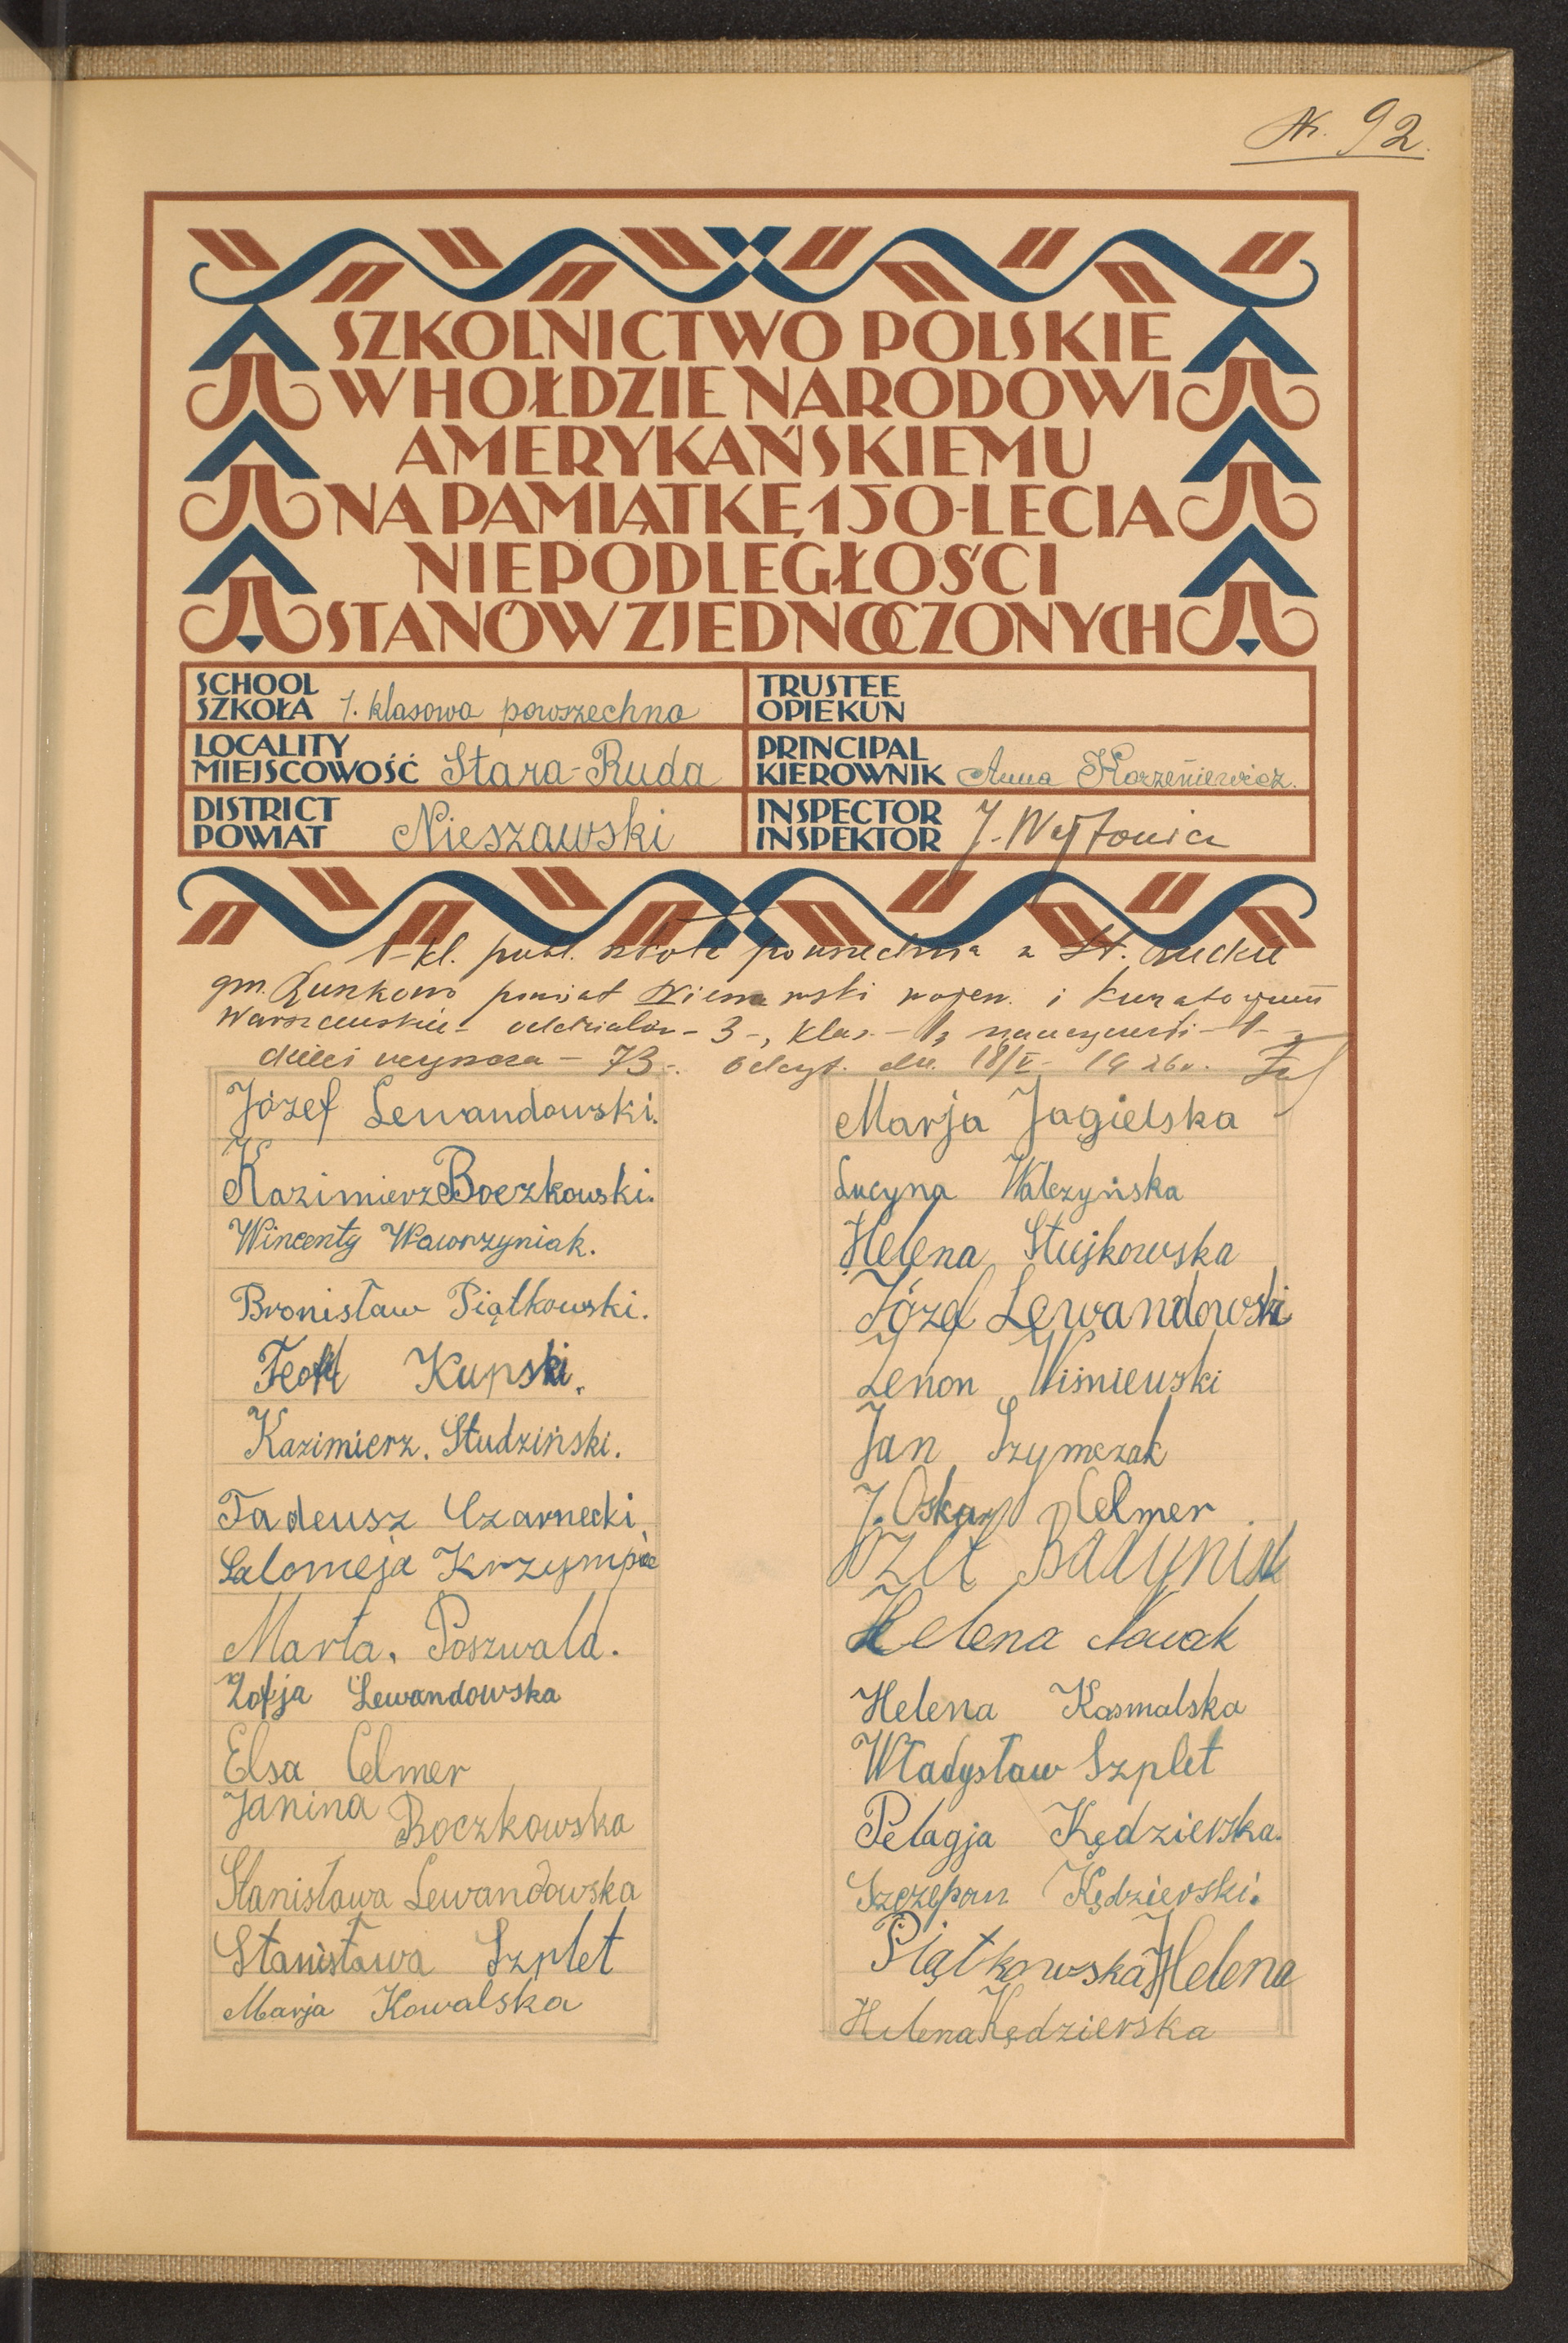 Nr. 92.
SZKOLNICTWO POLSKIE
W HOŁDZIE NARODOWI
AMERYKAŃSKIEMU
NA PAMIĄTKĘ 150-LECIA
NIEPODLEGŁOŚCI
STANÓW ZJEDNOCZONYCH
SCHOOL
SZKOŁA 1. klasowa powszechna
TRUSTEE
OPIEKUN
LOCALITY
MIEJSCOWOŚĆ Stara-Ruda
PRINCIPAL
KIEROWNIK Anna Korzeniewicz.
DISTRICT
POWIAT Nieszawski
INSPECTOR
INSPEKTOR J.
1-kl. publ. szkoła powszechna w St. Rudzie
gm. powiat Nieszawski wojew. i Kuratorjum
Warszawskie - oddziałów - 3 -, klas - 1, nauczycieli - 1 -,
dzieci 73 -. dn. 18/V - 1926 r.
Józef Lewandowski.
Kazimierz Boczkowski.
Wincenty Wawrzyniak.
Bronisław Piątkowski.
Kupski.
Kazimierz. Studziński.
Tadeusz Czarnecki
Salomeja
Marta. Poszwald.
Zofja Lewandowska
Elsa Celmer
Janina Boczkowska
Stanisława Lewandowska
Stanisława Szplet
Marja Kowalska
Marja Jagielska
Lucyna Walczyńska
Helena Stujkowska
Józef Lewandowski
Zenon Wiśniewski
Jan Szymczak
J. Oskar Celmer
Józef
Helena Nowak
Helena Kasmalska
Władysław Szplet
Pelagja Kędzierska.
Szczepan Kędzierski.
Piątkowska Helena
Helena Kędzierska